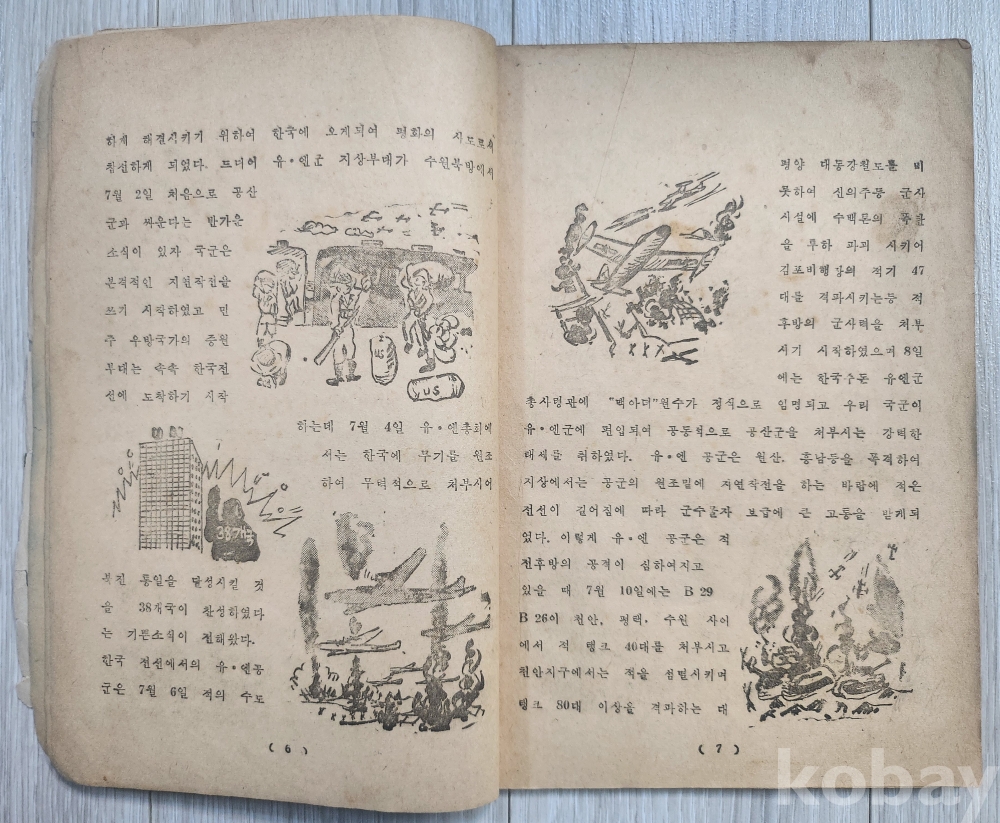 하게 해결시키기 위하여 한국에 오게되여 평화의 사도로서
참전하게 되었다. 드디어 유·엔군 지상부대가 수원북방에서
7월 2일 처음으로 공산
군과 싸운다는 반가운
소식이 있자 국군은
본격적인 지원작전을
쓰기 시작하였고 민
주 우방국가의 증원
부대는 속속 한국전
선에 도착하기 시작
US
US
하는데 7월 4일 유·엔총회에
서는 한국에 무기를 원조
하여 무력적으로 처부시어
38개국
북진 통일을 달성시킬 것
을 38개국이 찬성하였다
는 기쁜소식이 전해왔다.
한국 전선에서의 유·엔공
군은 7월 6일 적의 수도
( 6 )
평양 대동강철도를 비
롯하여 신의주등 군사
시설에 수백돈의 폭탄
을 투하 파괴 시키어
김포비행장의 적기 47
대를 격파시키는등 적
후방의 군사력을 처부
시기 시작하였으며 8일
에는 한국주둔 유엔군
총사령관에 "맥아더"원수가 정식으로 임명되고 우리 국군이
유·엔군에 편입되여 공동적으로 공산군을 처부시는 강력한
태세를 취하였다. 유·엔 공군은 원산, 흥남등을 폭격하여
지상에서는 공군의 원조밑에 지연작전을 하는 바람에 적은
전선이 길어짐에 따라 군수물자 보급에 큰 고통을 받게되
었다. 이렇게 유·엔 공군은 적
전후방의 공격이 심하여지고
있을 때 7월 10일에는 B 29
B 26이 천안, 평택, 수원 사이
에서 적 탱크 40대를 처부시고
천안지구에서는 적을 섬멸시키며
탱크 80대 이상을 격파하는 대
( 7 )
kobay